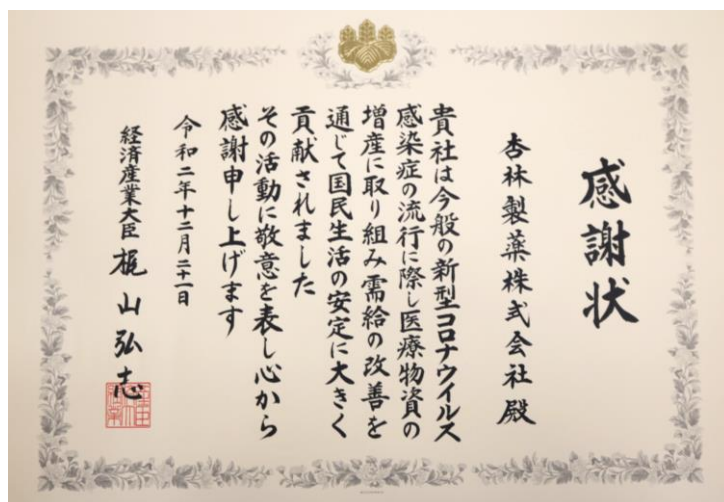 感謝状
杏林製薬株式会社殿
貴社は今般の新型コロナウイルス
感染症の流行に際し医療物資の
増産に取り組み需給の改善を
通じて国民生活の安定に大きく
貢献されました
その活動に敬意を表し心から
感謝申し上げます
令和二年十二月二十一日
経済産業大臣 梶山弘志